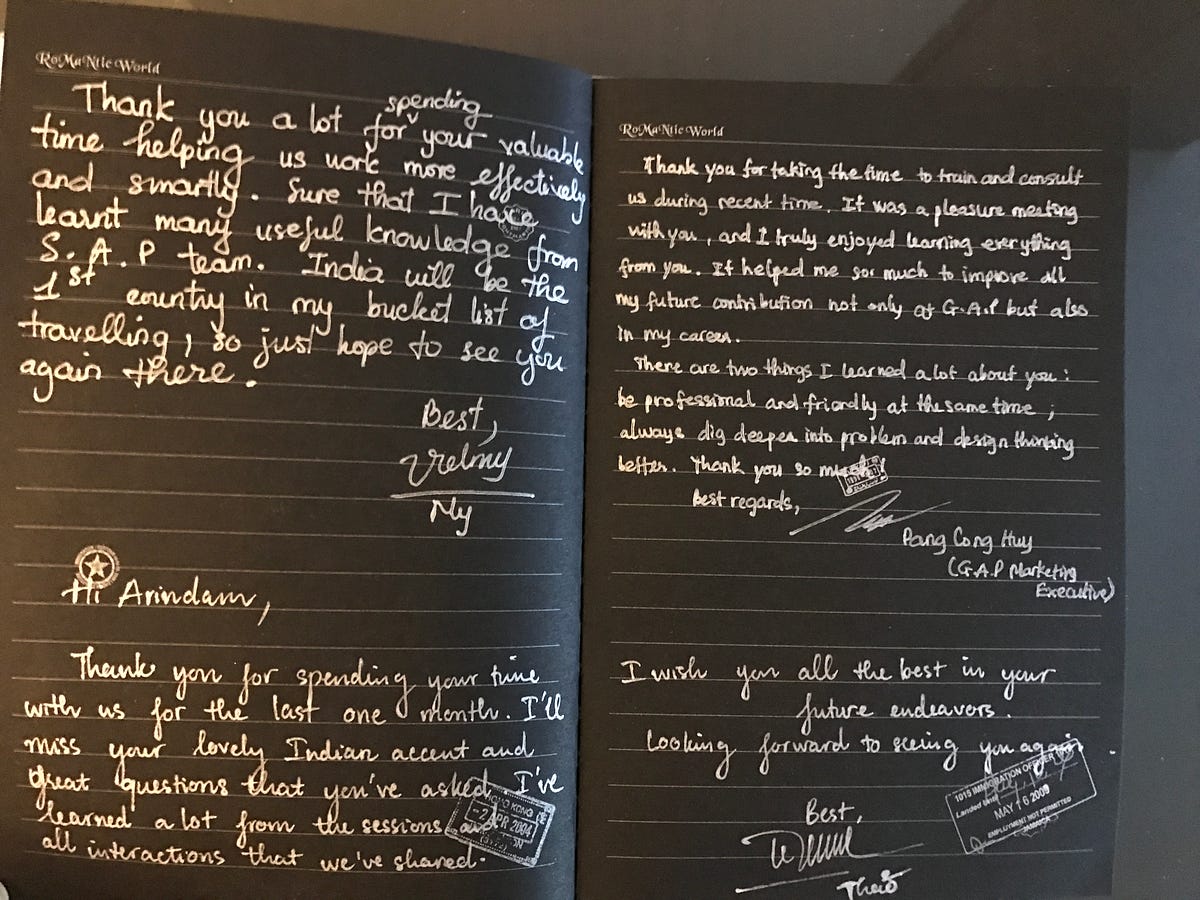 RoMaNtic World
Thank you a lot for spending your valuable
time helping us work more effectively
and smartly. Sure that I have
learnt many useful knowledge from
S.A.P team. India will be the
1st country in my bucket list of
travelling, so just hope to see you
again there.
Best,
My
Hi Arindam,
Thank you for spending your time
with us for the last one month. I'll
miss your lovely Indian accent and
great questions that you've asked. I've
learned a lot from the sessions and
all interactions that we've shared.
HONG KONG
-2 APR 2004
RoMaNtic World
Thank you for taking the time to train and consult
us during recent time. It was a pleasure meeting
with you, and I truly enjoyed learning everything
from you. It helped me soo much to improve all
my future contribution not only at G.A.P but also
in my career.
There are two things I learned a lot about you :
be professional and friendly at the same time ;
always dig deeper into problem and design thinking
better. Thank you so much
Best regards,
Pang Cong Huy
(G.A.P Marketing
Executive)
I wish you all the best in your
future endeavors.
Looking forward to seeing you again.
1015 IMMIGRATION OFFICER
Landed until
MAY 16 2009
EMPLOYMENT NOT PERMITTED
JAMAICA
Best,
Thảo